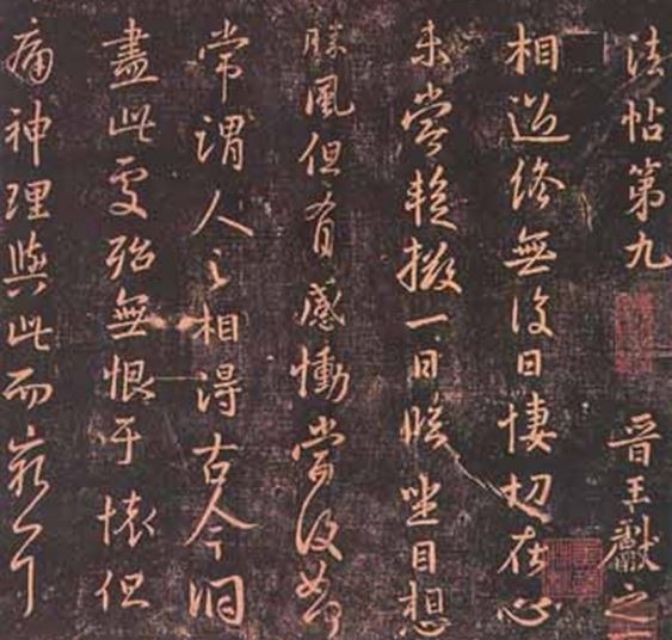 法帖第九 晉王獻之
相過終無復日悽切在心
未嘗暫撥一日臨坐目想
勝風但有感慟當復如何
常謂人之相得古今洞
盡此處殆無恨于懷但
痛神理與此而窮耳